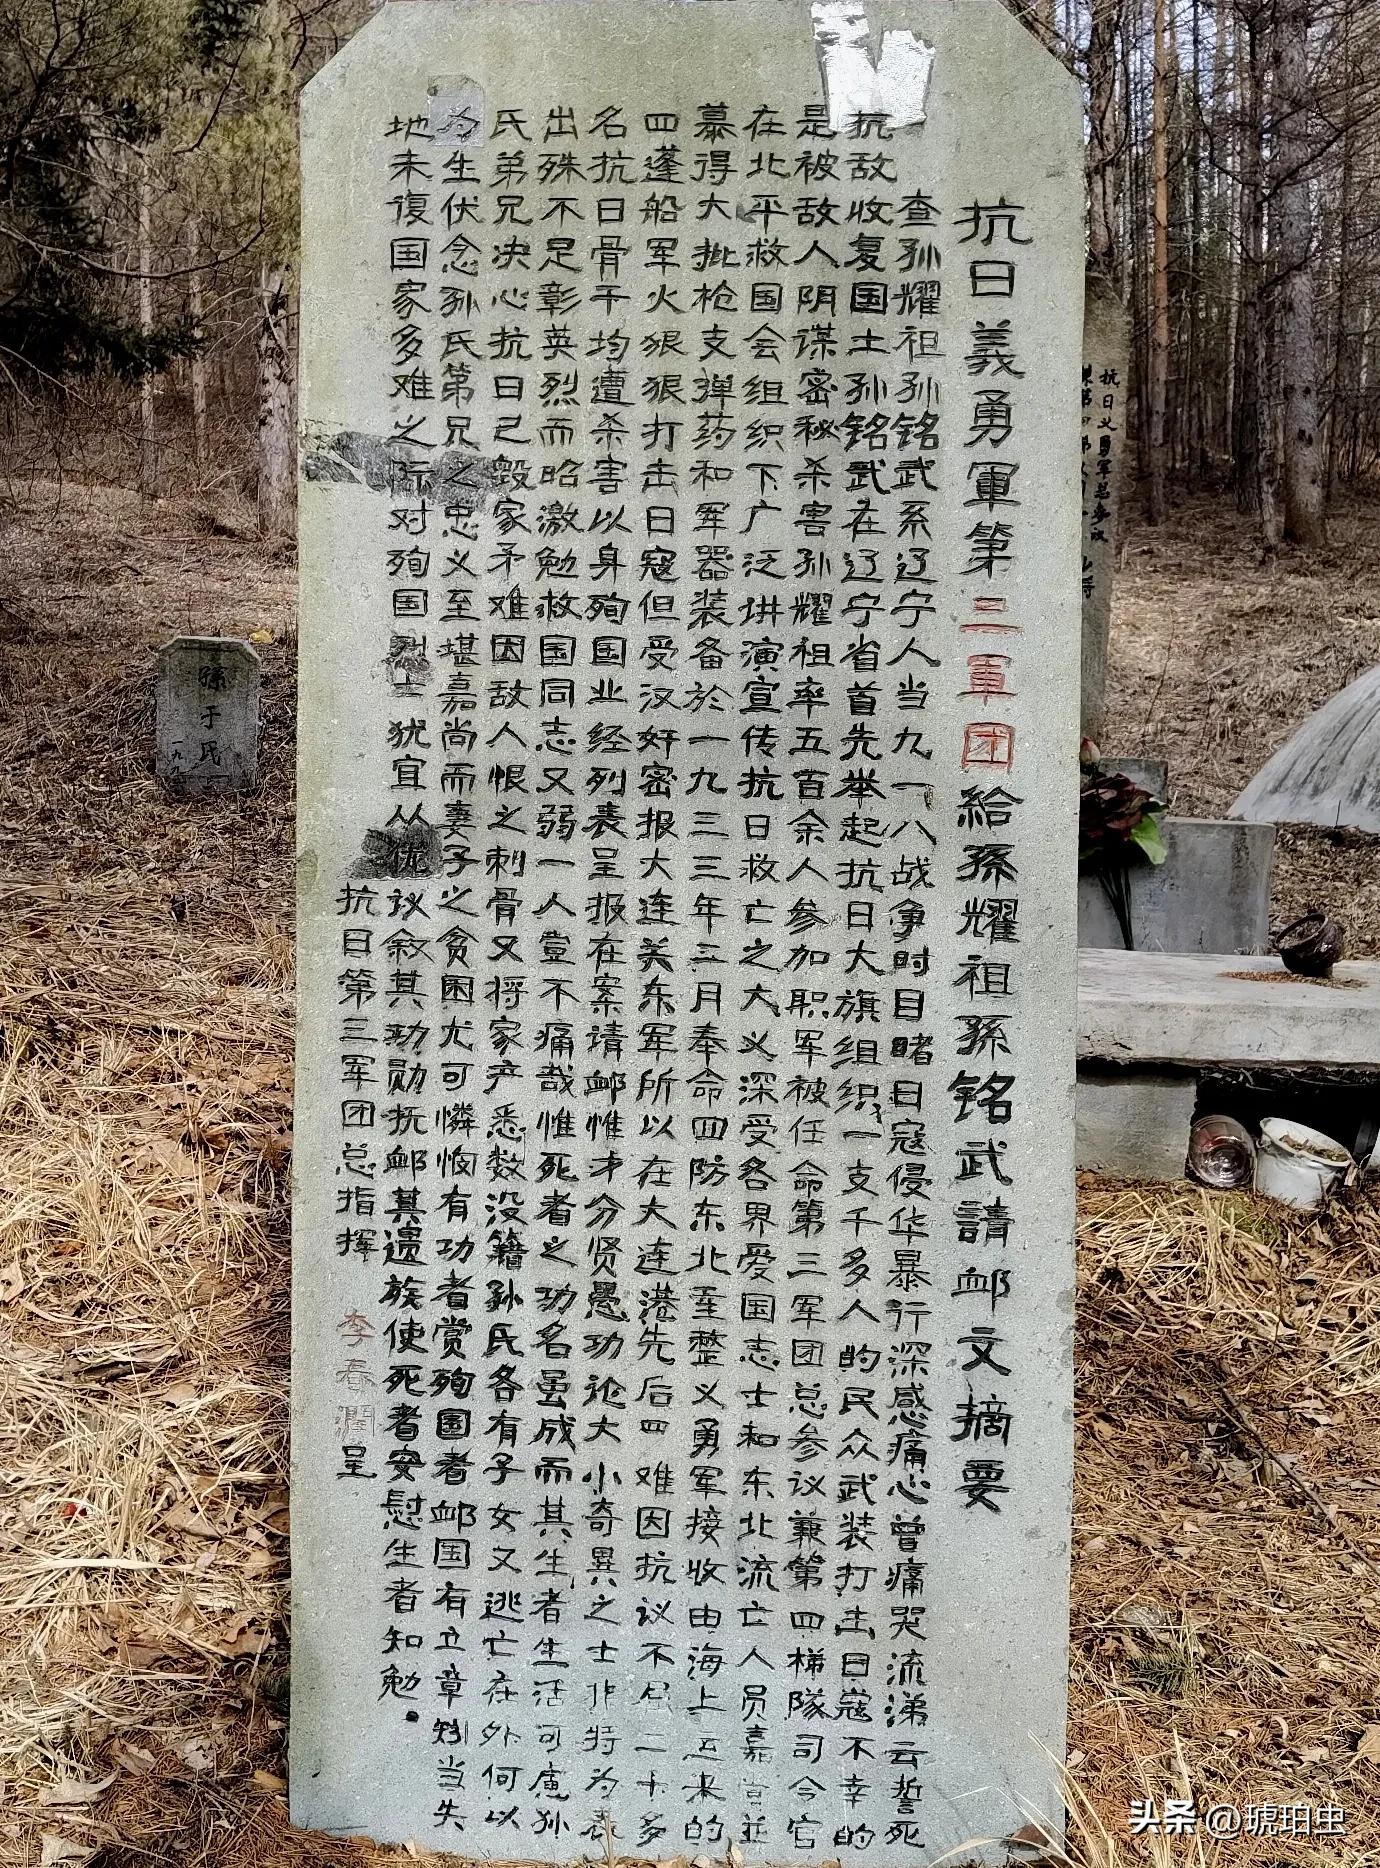 抗日義勇軍第三軍团給孫耀祖孫铭武請衈文摘要
查孙耀祖孙铭武系辽宁人当九一八战争时目睹日寇侵华暴行深感痛心曾痛哭流涕云誓死
抗敌收复国土孙铭武在辽宁省首先举起抗日大旗组织一支千多人的民众武装打击日寇不幸的
是被敌人阴谋密秘杀害孙耀祖率五百余人参加职军被任命第三军团总参议兼第四梯隊司令官
在北平救国会组织下广泛讲演宣传抗日救亡之大义深受各界爱国志士和东北流亡人员嘉
慕得大批枪支弹药和军器装备於一九三三年三月奉命四防东北至整义勇军接收由海上运来的
四蓬船军火狠狠打击日寇但受汉奸密报大连关东军所以在大连港先后四难因抗议不屈二十多
名抗日骨干均遭杀害以身殉国业经列表呈报在案请衈惟才分贤愚功论大小奇異之士非特为表
出殊不足彰英烈而昭激勉救国同志又弱一人岂不痛哉惟死者之功名虽成而其生者生活可虑孙
氏弟兄决心抗日已毁家矛难因敌人恨之刺骨又将家产悉数没籍孙氏各有子女又逃亡在外何以
为生伏念孙氏第兄之忠义至堪嘉尚而妻子之贫困尤可憐悯有功者赏殉国者衈国有立章
当失
地未復国家多难之际对殉国烈士犹宜从优议敘其功勋抚衈其遗族使死者安慰生者知勉。
抗日第三军团总指挥 李春潤 呈
抗日义勇军总参议
孫于氏
一九九
头条 @琥珀虫